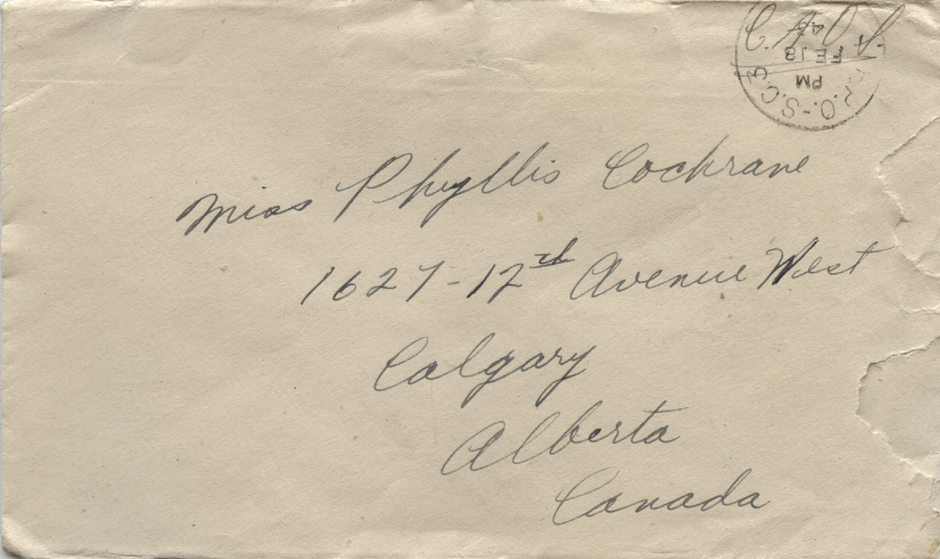 C.A.O.S.
F.P.O.-S.C.3
PM
FE 18
Miss Phyllis Cochrane
1627-12th Avenue West
Calgary
Alberta
Canada